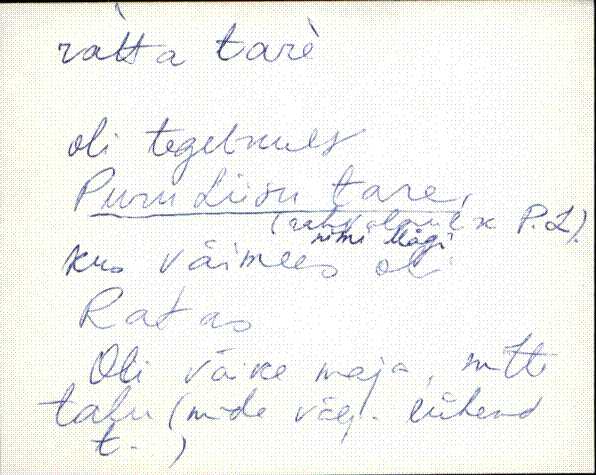 ràtta tarè
oli tegelikult
Puru Liisu tare,
(rahvakeelne P.L).
nimi Mägi
kus väimees oli
Ratas
Oli väike maja, mitte
talu (mida väej. lühend
t. )